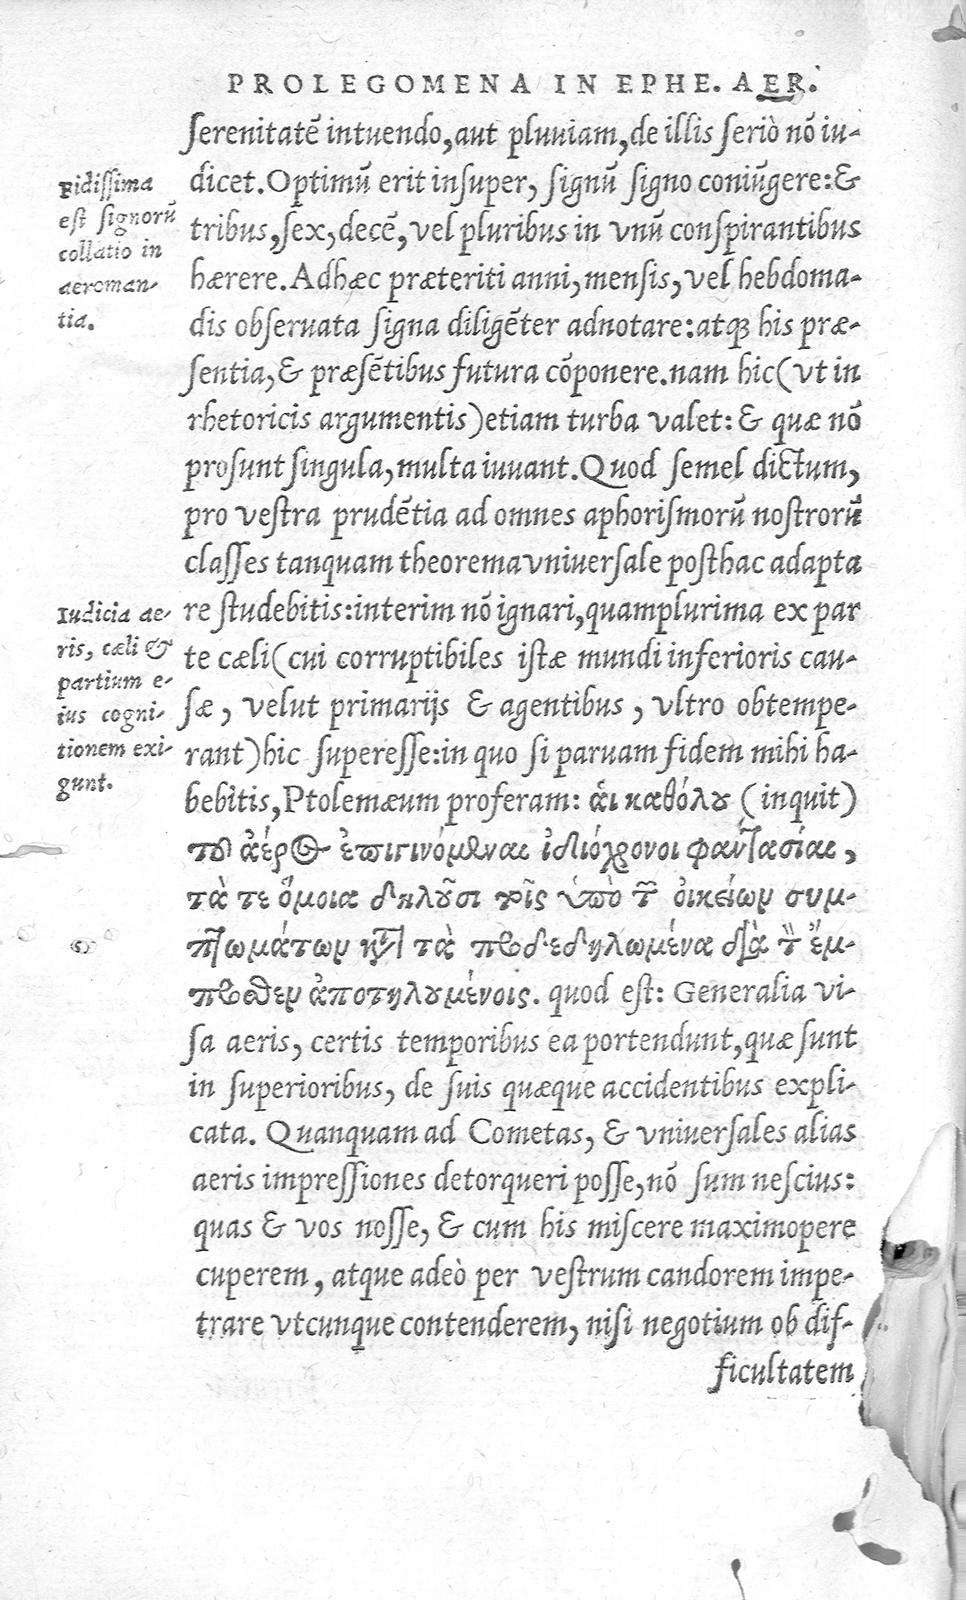 PROLEGOMENA IN EPHE. AER.
serenitatē intuendo, aut pluuiam, de illis seriò nō iu-
dicet. Optimū erit insuper, signū signo coniūgere: &
tribus, sex, decē, vel pluribus in vnū conspirantibus
hærere. Adhæc præteriti anni, mensis, vel hebdoma-
dis obseruata signa diligēter adnotare: atq3 his præ-
sentia, & præsētibus futura cōponere. nam hic (vt in
rhetoricis argumentis) etiam turba valet: & quæ nō
prosunt singula, multa iuuant. Quod semel dictum,
pro vestra prudētia ad omnes aphorismorū nostrorū
classes tanquam theorema vniuersale posthac adapta
re studebitis: interim nō ignari, quamplurima ex par
te cæli (cui corruptibiles istæ mundi inferioris cau-
sæ, velut primarijs & agentibus, vltro obtempe-
rant) hic superesse: in quo si paruam fidem mihi ha-
bebitis, Ptolemæum proferam: ἁι καθόλου (inquit)
τοῦ ἀέρος ἐπιγινόμεναι ἰδιόχρονοι φαντασίαι,
τὰ τε ὅμοια δηλοῦσι τοῖς ὑπὸ τῶν οἰκείων συμ-
πτωμάτων κατὰ τὰ προδεδηλωμένα διὰ τῶν ἔμ-
προσθεν ἀποτηλουμένοις. quod est: Generalia vi-
sa aeris, certis temporibus ea portendunt, quæ sunt
in superioribus, de suis quæque accidentibus expli-
cata. Quanquam ad Cometas, & vniuersales alias
aeris impressiones detorqueri posse, nō sum nescius:
quas & vos nosse, & cum his miscere maximopere
cuperem, atque adeò per vestrum candorem impe-
trare vtcunque contenderem, nisi negotium ob dif-
ficultatem
Fidissima
est signorū
collatio in
aeroman-
tia.
Iudicia ae-
ris, cæli &
partium e-
ius cogni-
tionem exi-
gunt.